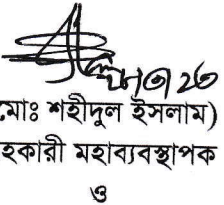 মোঃ শহীদুল ইসলাম)
হকারী মহাব্যবস্থাপক
ও